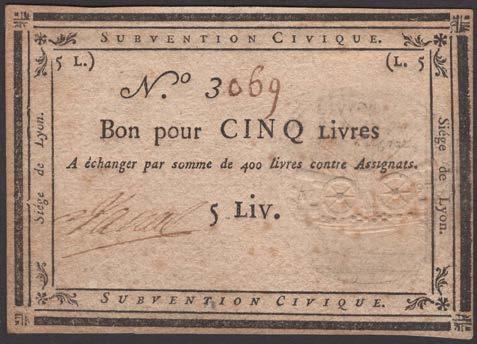 SUBVENTION CIVIQUE.
5 L.)
(L. 5
N.º 3069
Bon pour CINQ Livres
A échanger par somme de 400 livres contre Assignats.
5 Liv.
Siége de Lyon.
Siége de Lyon.
SUBVENTION CIVIQUE.